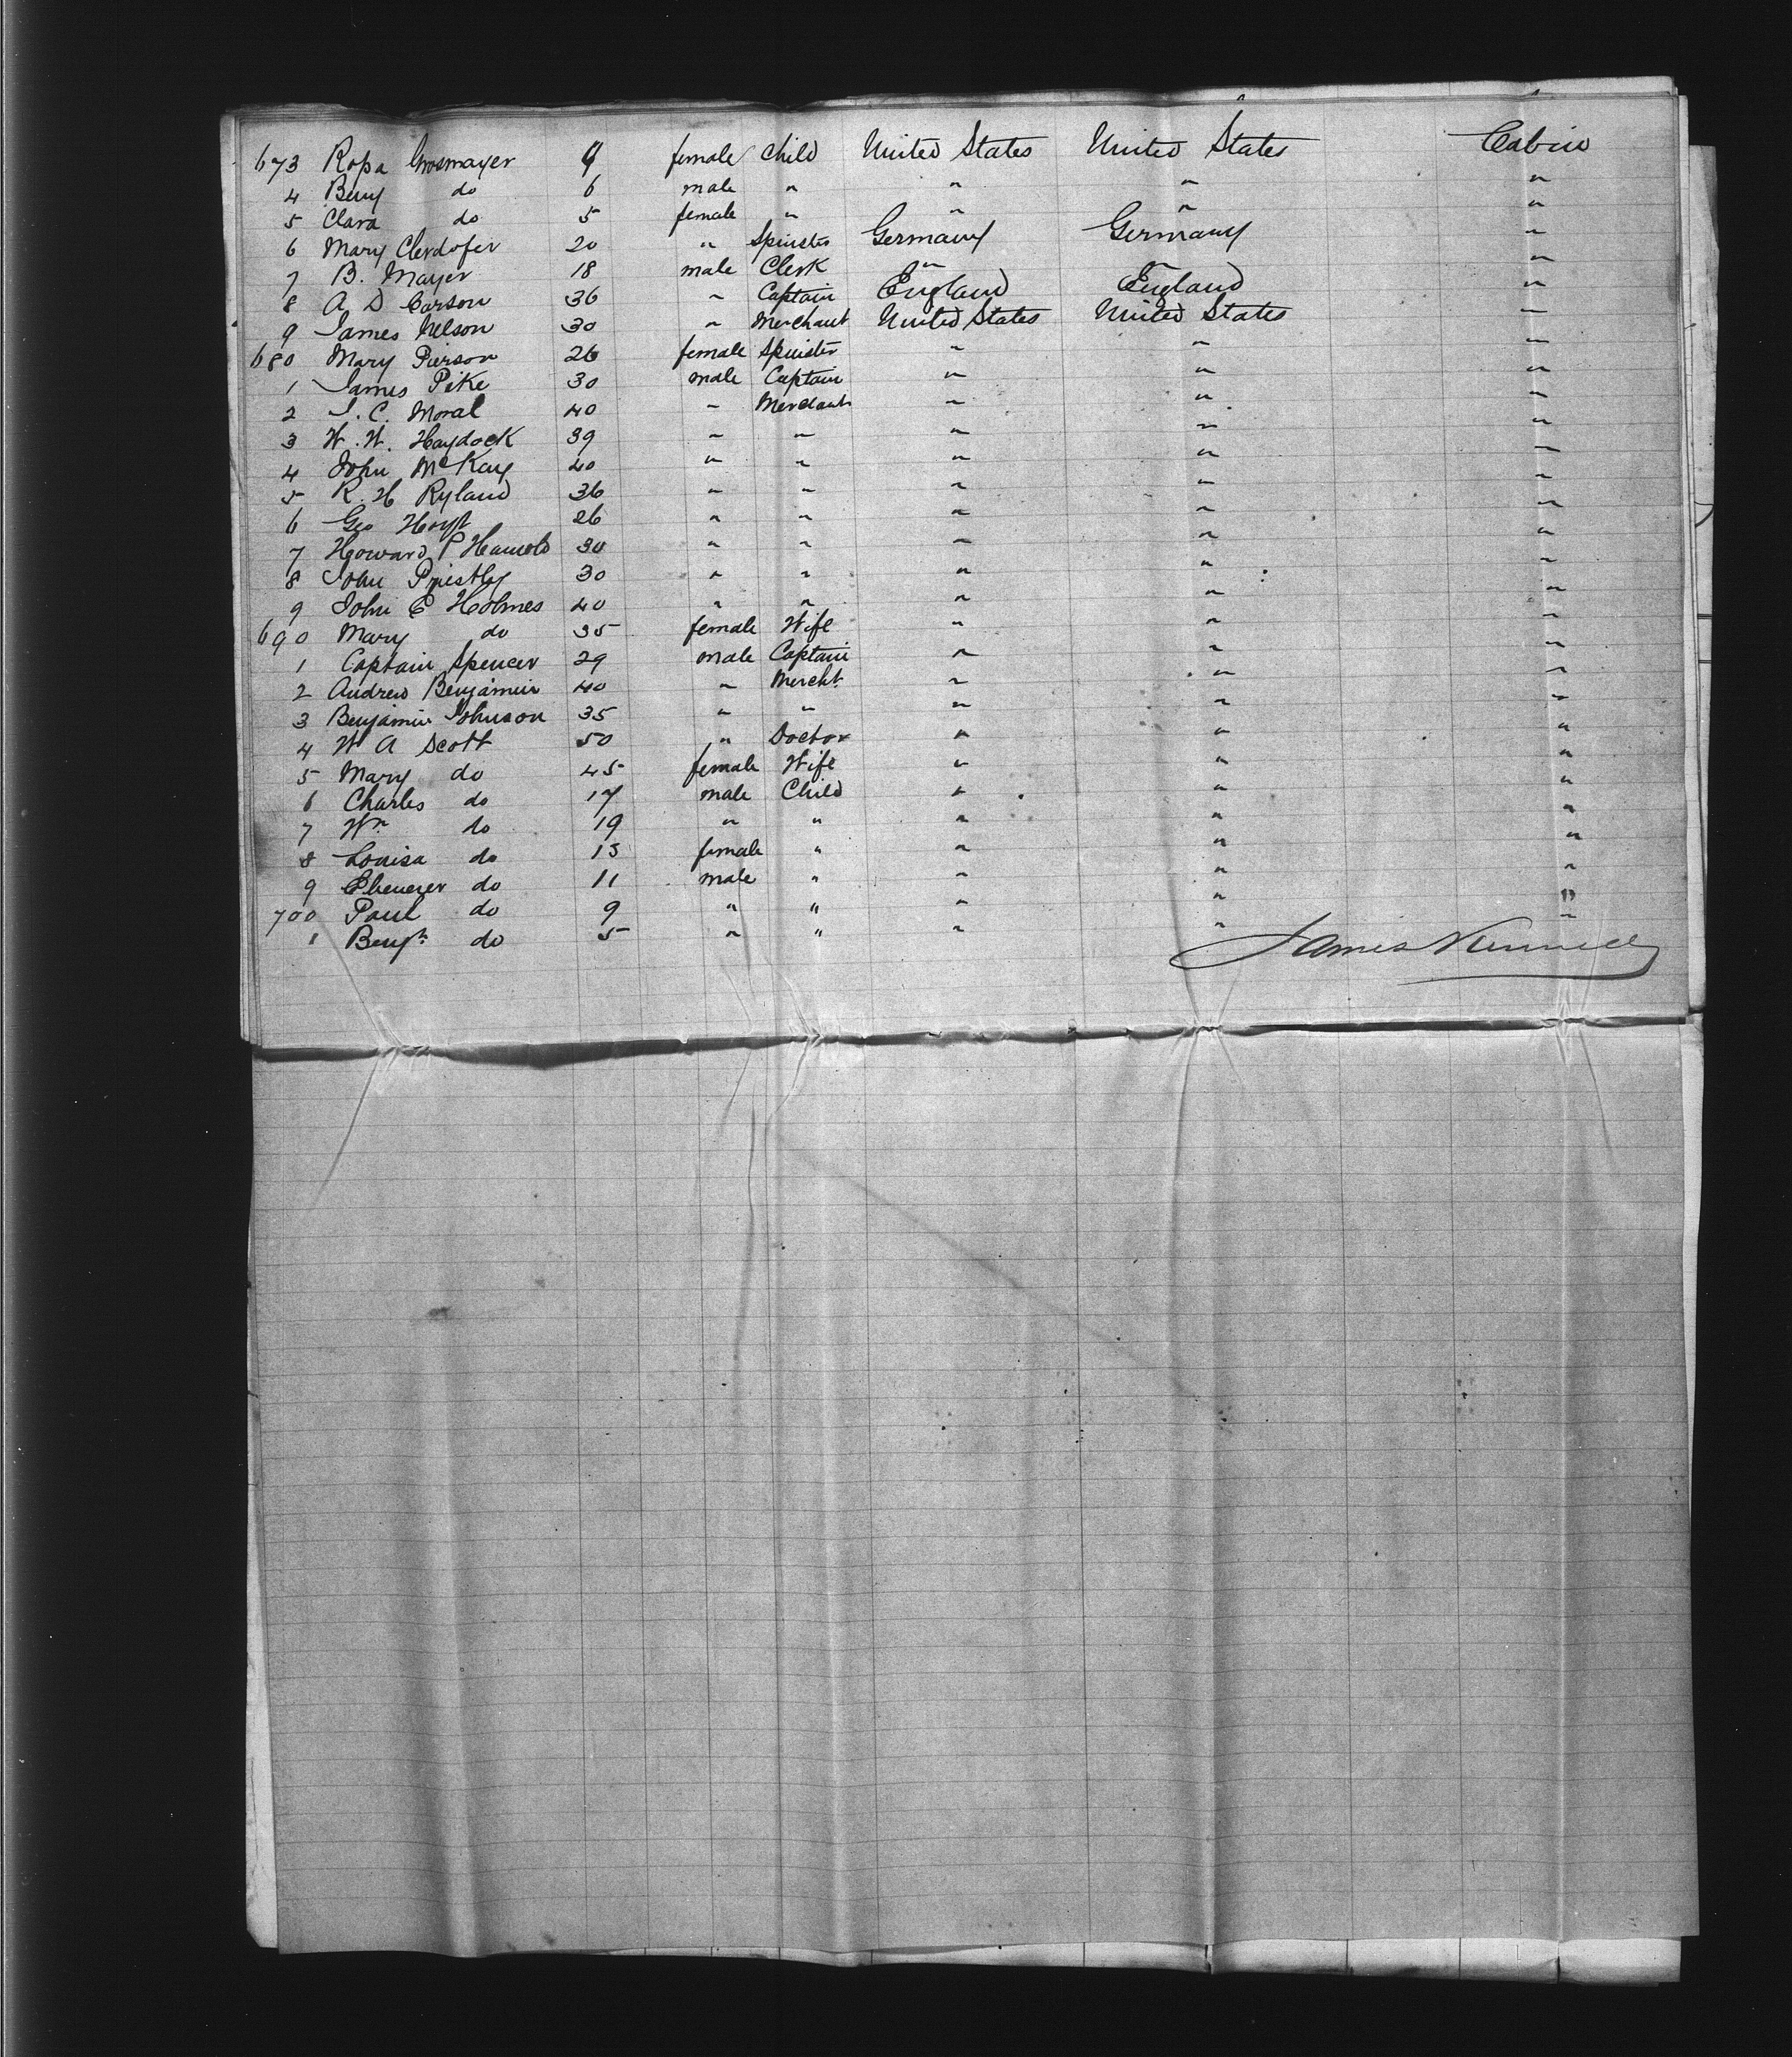 673 Rosa Grosmayer 9 female Child United States United States Cabin
4 Benj do 6 male " " " "
5 Clara do 5 female " " " "
6 Mary Clerdofer 20 " Spinster Germany Germany "
7 B. Mayer 18 male Clerk " " "
8 A D Carson 36 " Captain England England "
9 James Nelson 30 " Merchant United States United States "
680 Mary Pierson 26 female Spinster " " "
1 James Pike 30 male Captain " " "
2 J. C. Moral 40 " Merchant " " "
3 W. W. Haydock 39 " " " " "
4 John McKay 40 " " " " "
5 R. H Ryland 36 " " " " "
6 Geo Hoyt 26 " " " " "
7 Howard P 30 " " " " "
8 John Priestley 30 " " " " "
9 John E Holmes 40 " " " " "
690 Mary do 35 female Wife " " "
1 Captain Spencer 29 male Captain " " "
2 Andrew Benjamin 40 " Mercht. " " "
3 Benjamin Johnson 35 " " " " "
4 W A Scott 50 " Doctor " " "
5 Mary do 45 female Wife " " "
6 Charles do 17 male Child " " "
7 Wm do 19 " " " " "
8 Louisa do 13 female " " " "
9 Ebenezer do 11 male " " " "
700 Paul do 9 " " " " "
1 Benjn do 5 " " " " "
James Kennedy